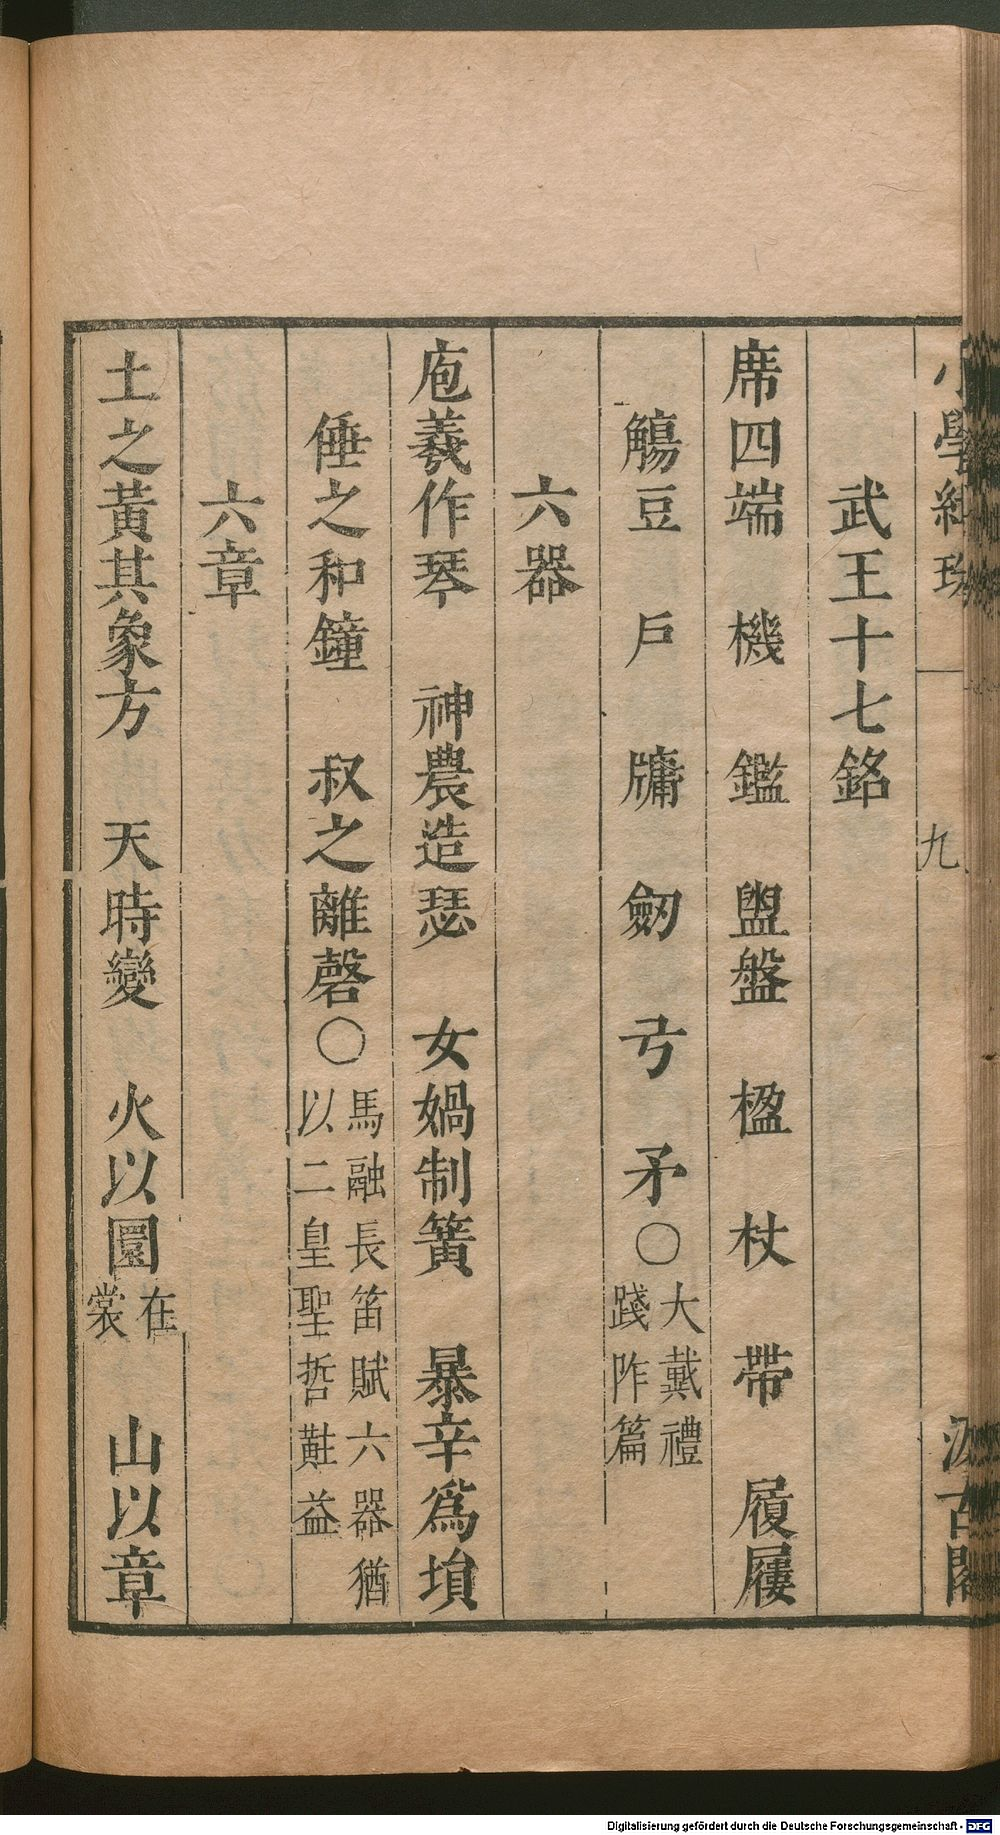 小學紺珠 九 汲古閣
武王十七銘
席四端 機 鑑 盥盤 楹 杖 帶 履屨
觴豆 戶 牖 劒 弓 矛〇大戴禮
踐阼篇
六器
庖羲作琴 神農造瑟 女媧制簧 暴辛爲塤
倕之和鐘 叔之離磬〇馬融長笛賦六器猶
以二皇聖哲黈益
六章
土之黃其象方 天時變 火以圜在
裳 山以章
Digitalisierung gefördert durch die Deutsche Forschungsgemeinschaft - DFG